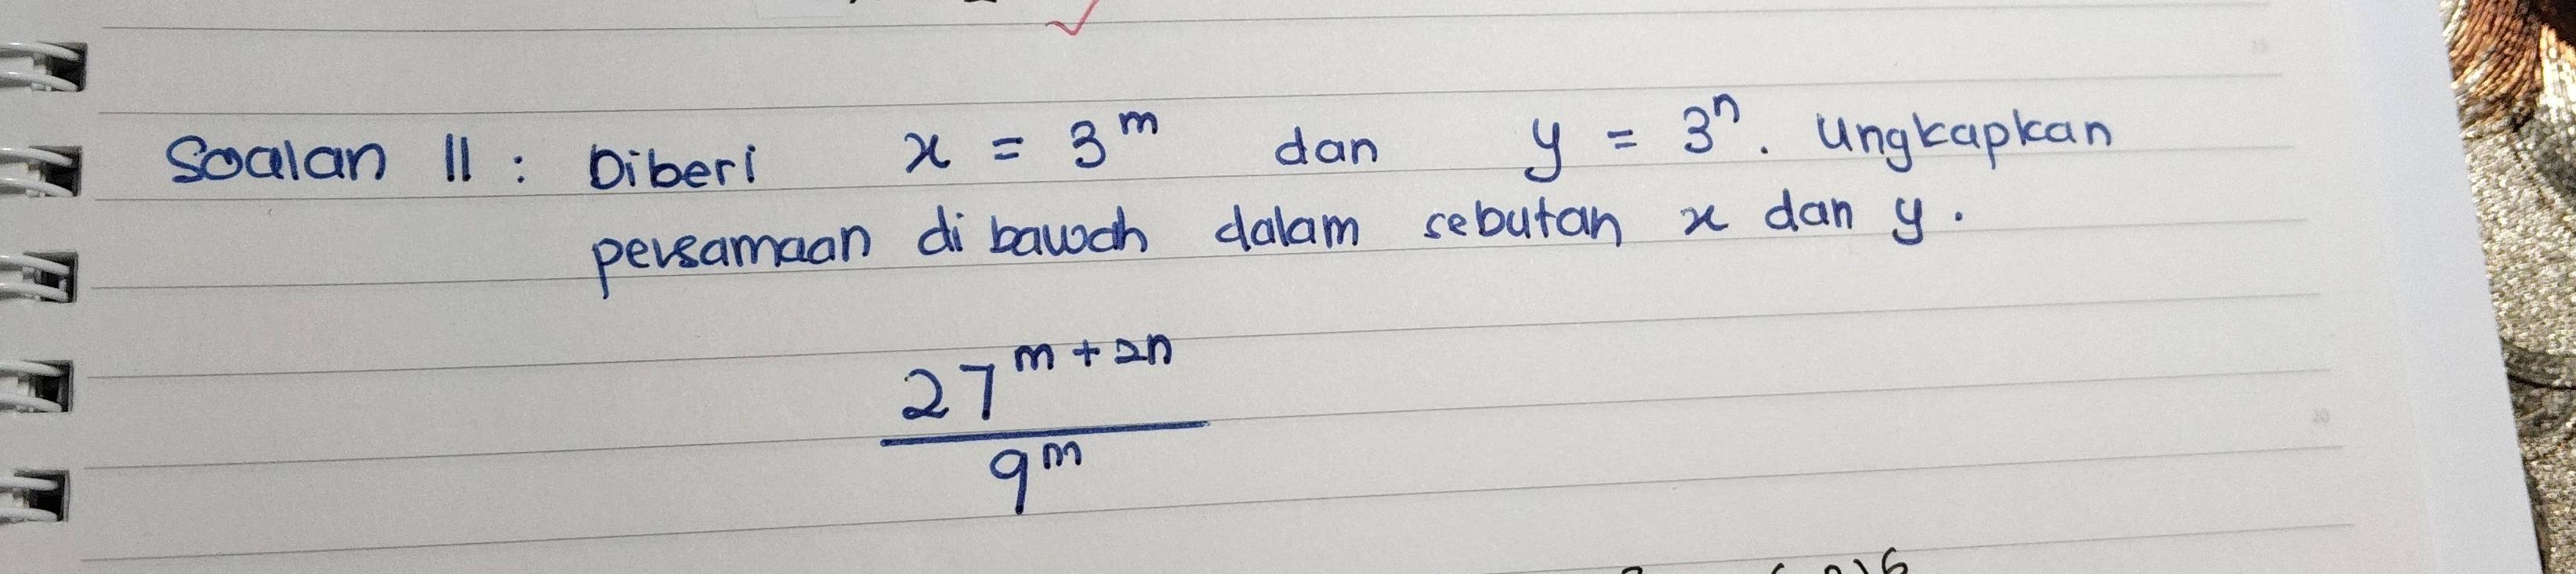 Soalan 11 : Diberi x = 3^m dan y = 3^n. Ungkapkan
persamaan di bawah dalam sebutan x dan y.
27^(m + 2n)
9^m